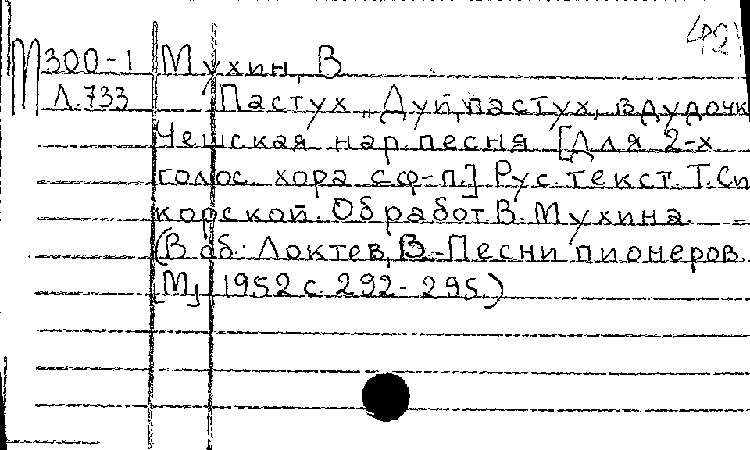 42
М300-1 Мухин, В
Л.733 Пастух. „Дуй, пастух, в дудочк
Чешская нар. песня [Для 2-х
голос. хора с ф-п.] Рус. текст. Т. Си
корской. Обработ. В. Мухина. =
(В сб: Локтев, В.-Песни пионеров.
[М] 1952 с. 292-295.)